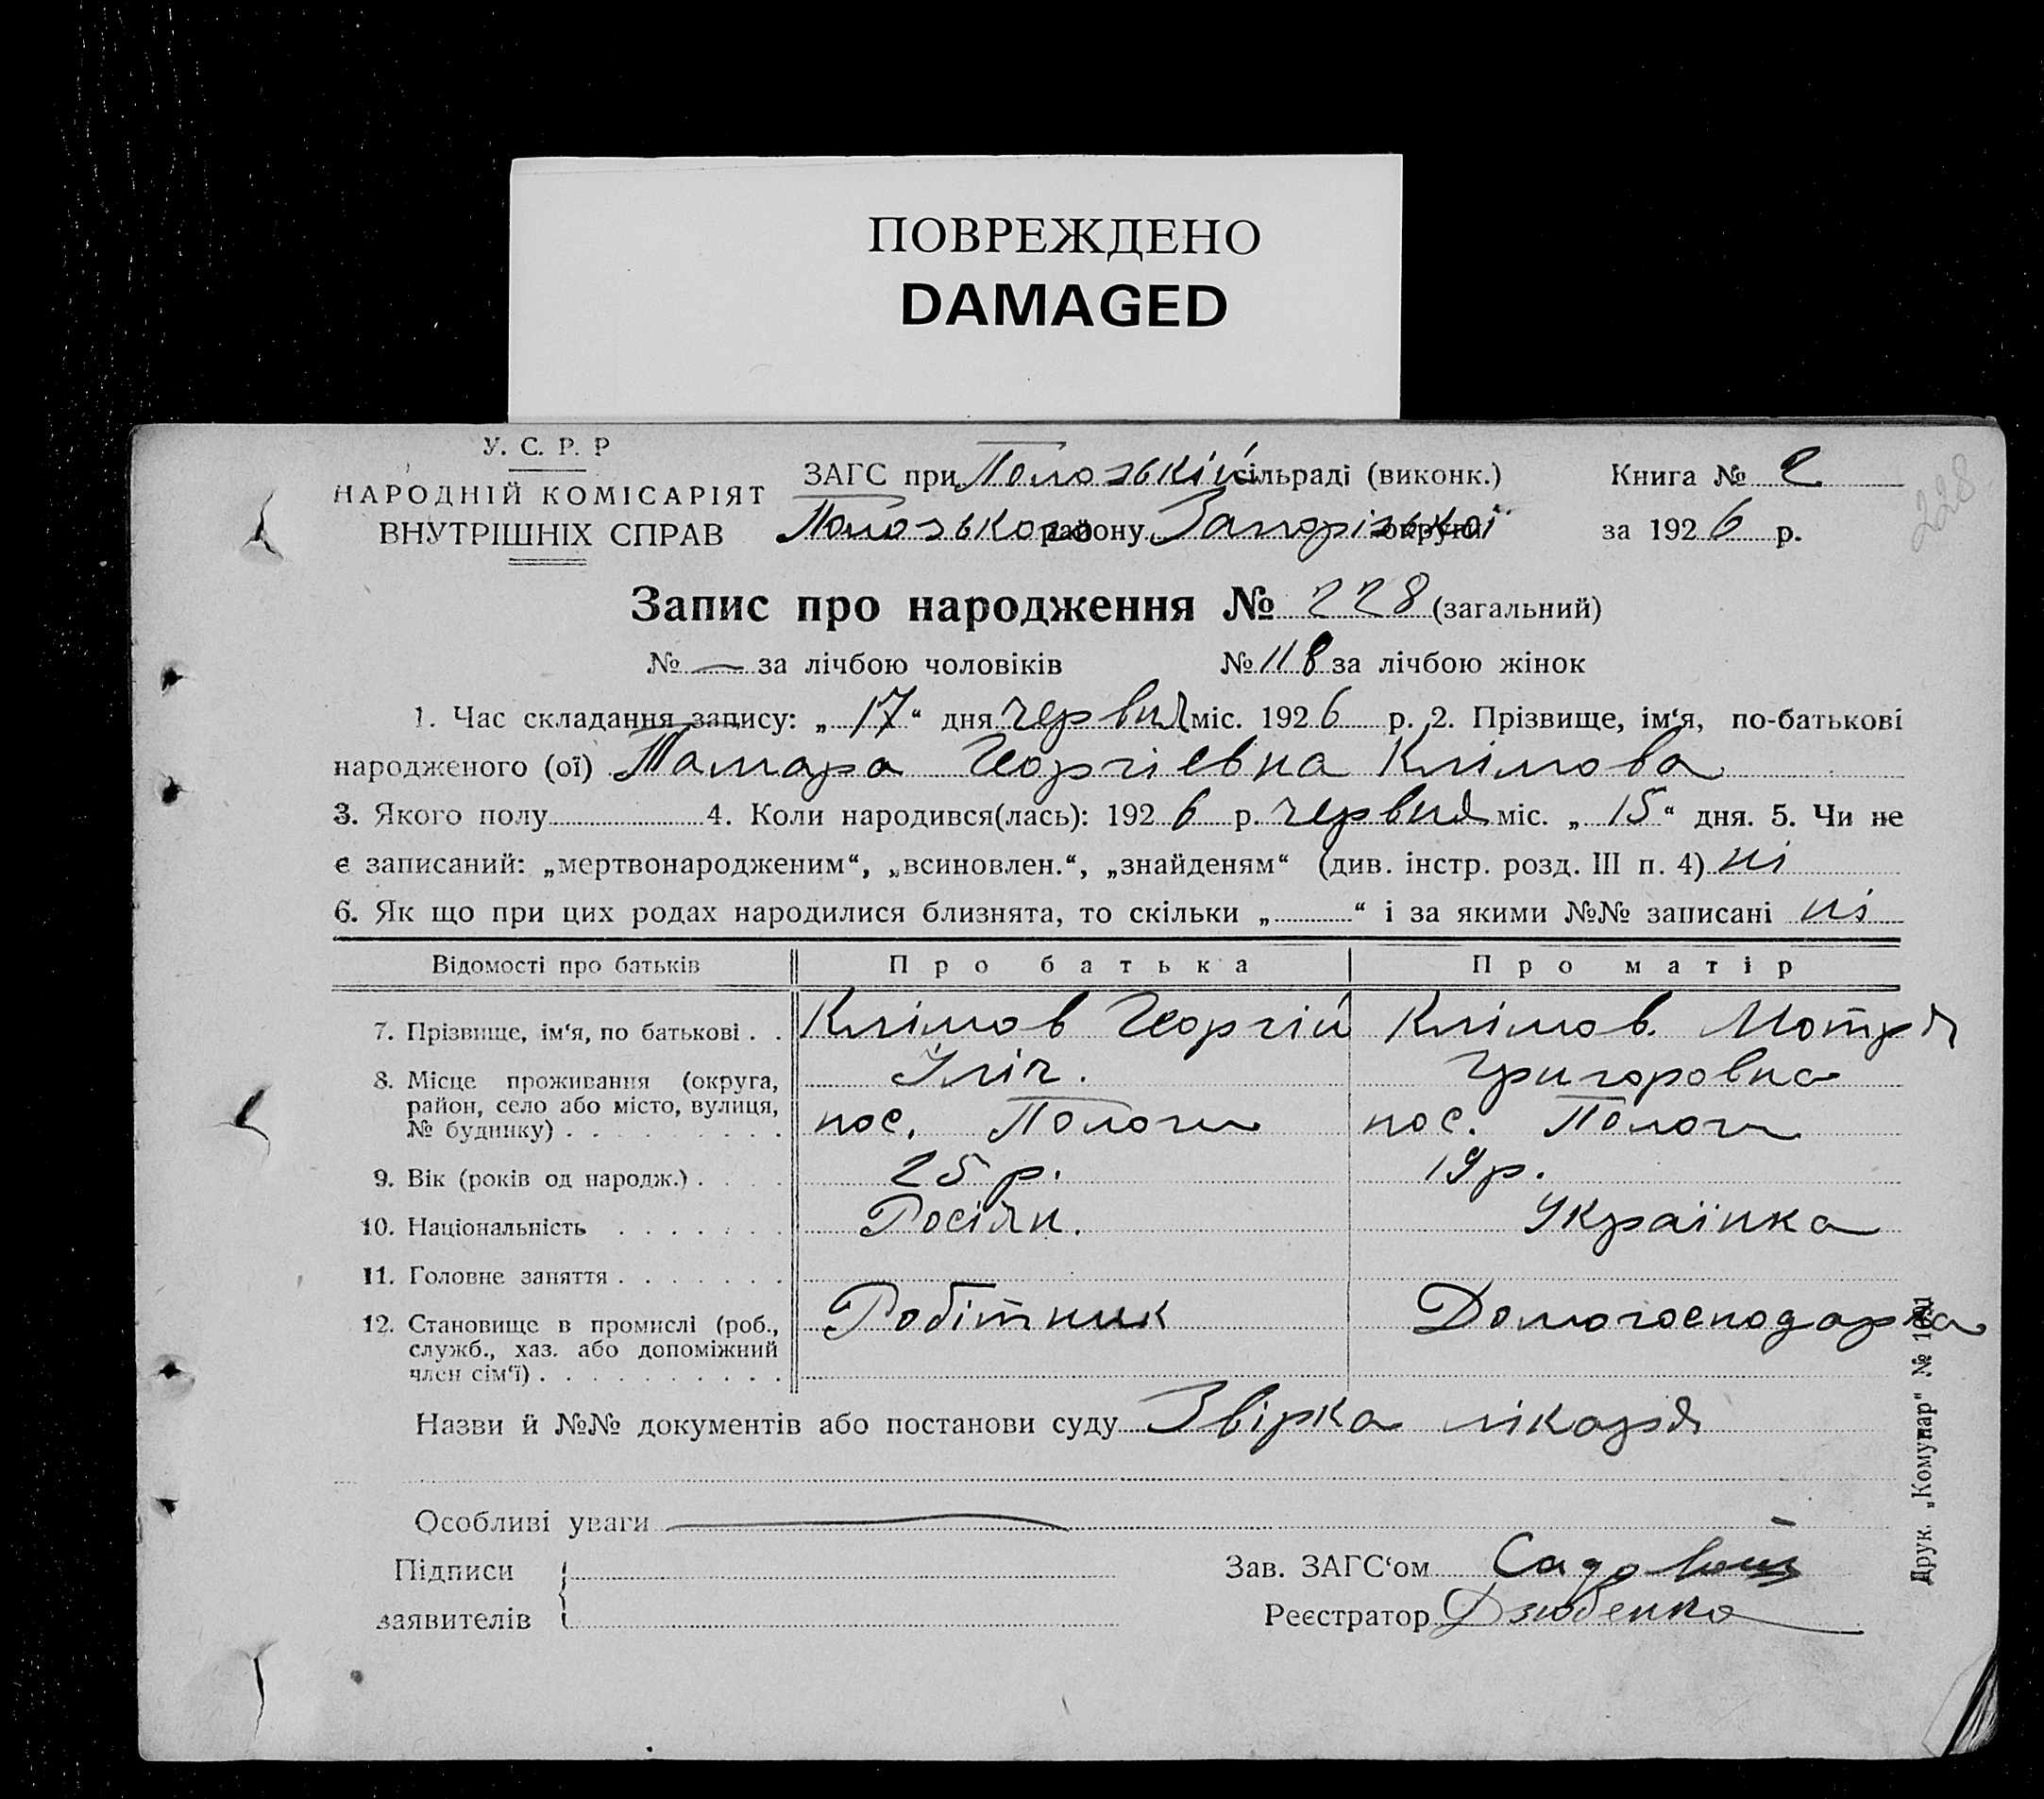 ПОВРЕЖДЕНО
DAMAGED
228
У. С. Р. Р
НАРОДНІЙ КОМІСАРІЯТ
ВНУТРІШНІХ СПРАВ
ЗАГС при Пологській сільраді (виконк.)
Пологського району Запорізької округи
Книга № 2
за 1926 р.
Запис про народження № 228 (загальний)
№ — за лічбою чоловіків № 118 за лічбою жінок
1. Час складання запису: „17“ дня червня міс. 1926 р. 2. Прізвище, ім‘я, по-батькові
народженого (ої) Тамара Георгіевна Клімова
3. Якого полу 4. Коли народився(лась): 1926 р. червня міс. „15“ дня. 5. Чи не
є записаний: „мертвонародженим“, „всиновлен.“, „знайденям“ (див. інстр. розд. III п. 4) ні
6. Як що при цих родах народилися близнята, то скільки „ “ і за якими №№ записані ні
Відомості про батьків Про батька Про матір
7. Прізвище, ім‘я, по батькові . . Клімов Георгій Клімов. Мотря
Іліч. Григоровна
8. Місце проживання (округа,
район, село або місто, вулиця,
№ будинку) . . . . . . . . . пос. Пологи пос. Пологи
9. Вік (років од народж.) . . . . 25 р. 19 р.
10. Національність . . . . . . . Росіян. Українка
11. Головне заняття . . . . . . .
12. Становище в промислі (роб.,
служб., хаз. або допоміжний
член сім‘ї) . . . . . . . . . . Робітник Домогосподарка
Назви й №№ документів або постанови суду Звірка лікаря
Особливі уваги
Підписи
заявителів
Зав. ЗАГС‘ом
Реєстратор Дзюбенко
Друк. „Комунар“ №